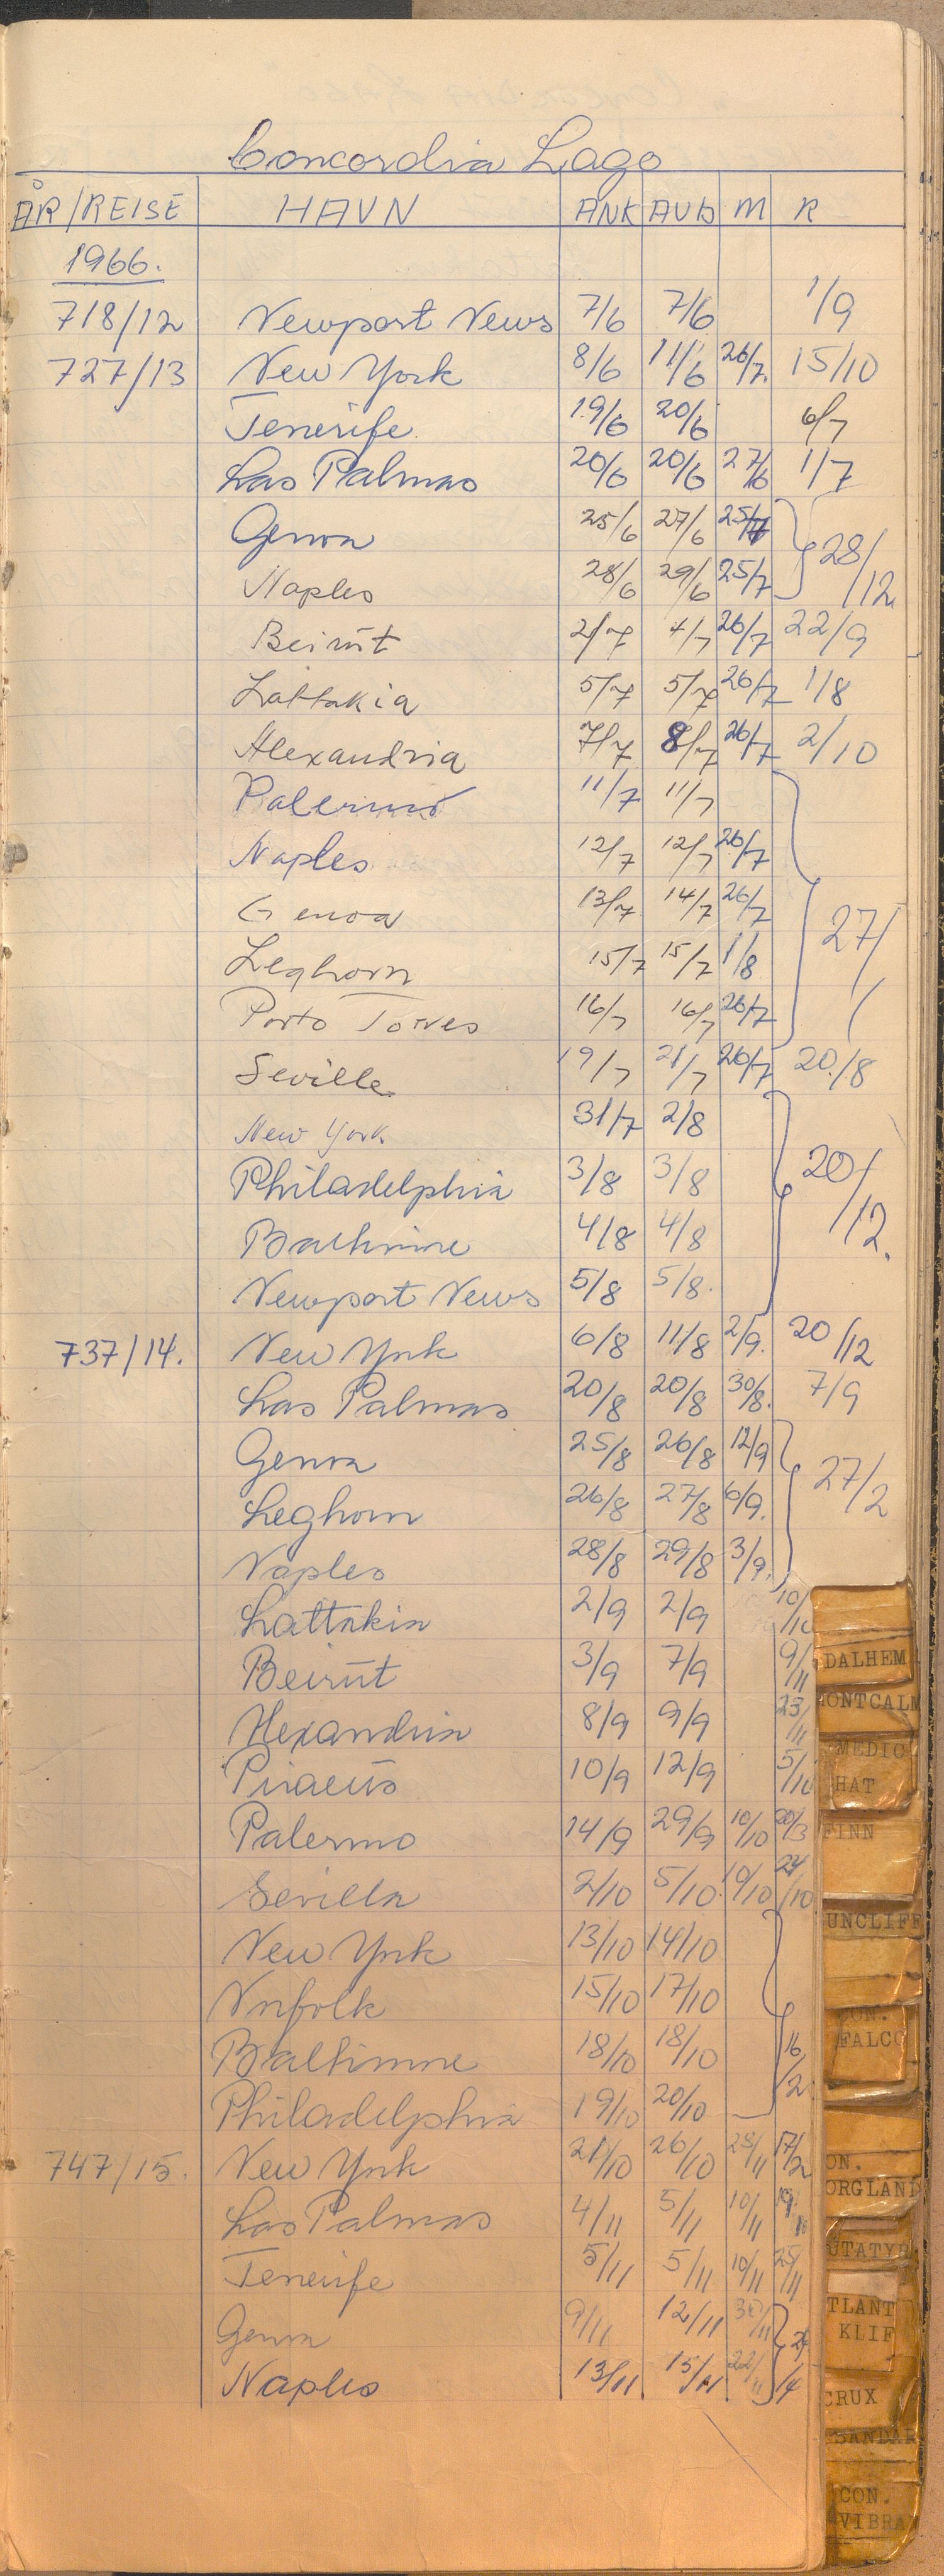 Concordia Lago
ÅR/REISE HAVN ANK AVG M R
1966.
718/12 Newport News 7/6 7/6 1/9
727/13 New York 8/6 11/6 26/7. 15/10
Tenerife 19/6 20/6 6/7
Las Palmas 20/6 20/6 27/6 1/7
Genoa 25/6 27/6 25/7
28/12
Naples 28/6 29/6 25/7
Beirut 2/7 4/7 26/7 22/9
Lattakia 5/7 5/7 26/7 1/8
Alexandria 7/7 8/7 26/7 2/10
Palermo 11/7 11/7
Naples 12/7 12/7 26/7
Genoa 13/7 14/7 26/7
27/1
Leghorn 15/7 15/7 1/8
Porto Torres 16/7 16/7 26/7
Seville 19/7 21/7 26/7 20/8
New York 31/7 2/8
Philadelphia 3/8 3/8
20/12.
Baltimore 4/8 4/8
Newport News 5/8 5/8.
737/14. New York 6/8 11/8 2/9. 20/12
Las Palmas 20/8 20/8 30/8. 7/9
Genoa 25/8 26/8 12/9
27/2
Leghorn 26/8 27/8 6/9.
Naples 28/8 29/8 3/9.
Lattakia 2/9 2/9 10/10
Beirut 3/9 7/9 9/11
Alexandria 8/9 9/9 23/11
Piraeus 10/9 12/9 5/10
Palermo 14/9 29/9 10/10 20/3
Sevilla 2/10 5/10 10/10 24/10
New York 13/10 14/10
Norfolk 15/10 17/10
Baltimore 18/10 18/10 16/2
Philadelphia 19/10 20/10
747/15. New York 21/10 26/10 17/2
Las Palmas 4/11 5/11 10/11
Tenerife 5/11 5/11 10/11 25/11
Genoa 9/11 12/11 30/11
Naples 13/11 15/11 22/11
DALHEM
MONTCALM
MEDIC
HAT
FINN
UNCLIFF
CON.
FALCO
ON.
ORGLAND
UTATYR
TLANT
KLIF
CRUX
SANDAR
CON.
VIBRA